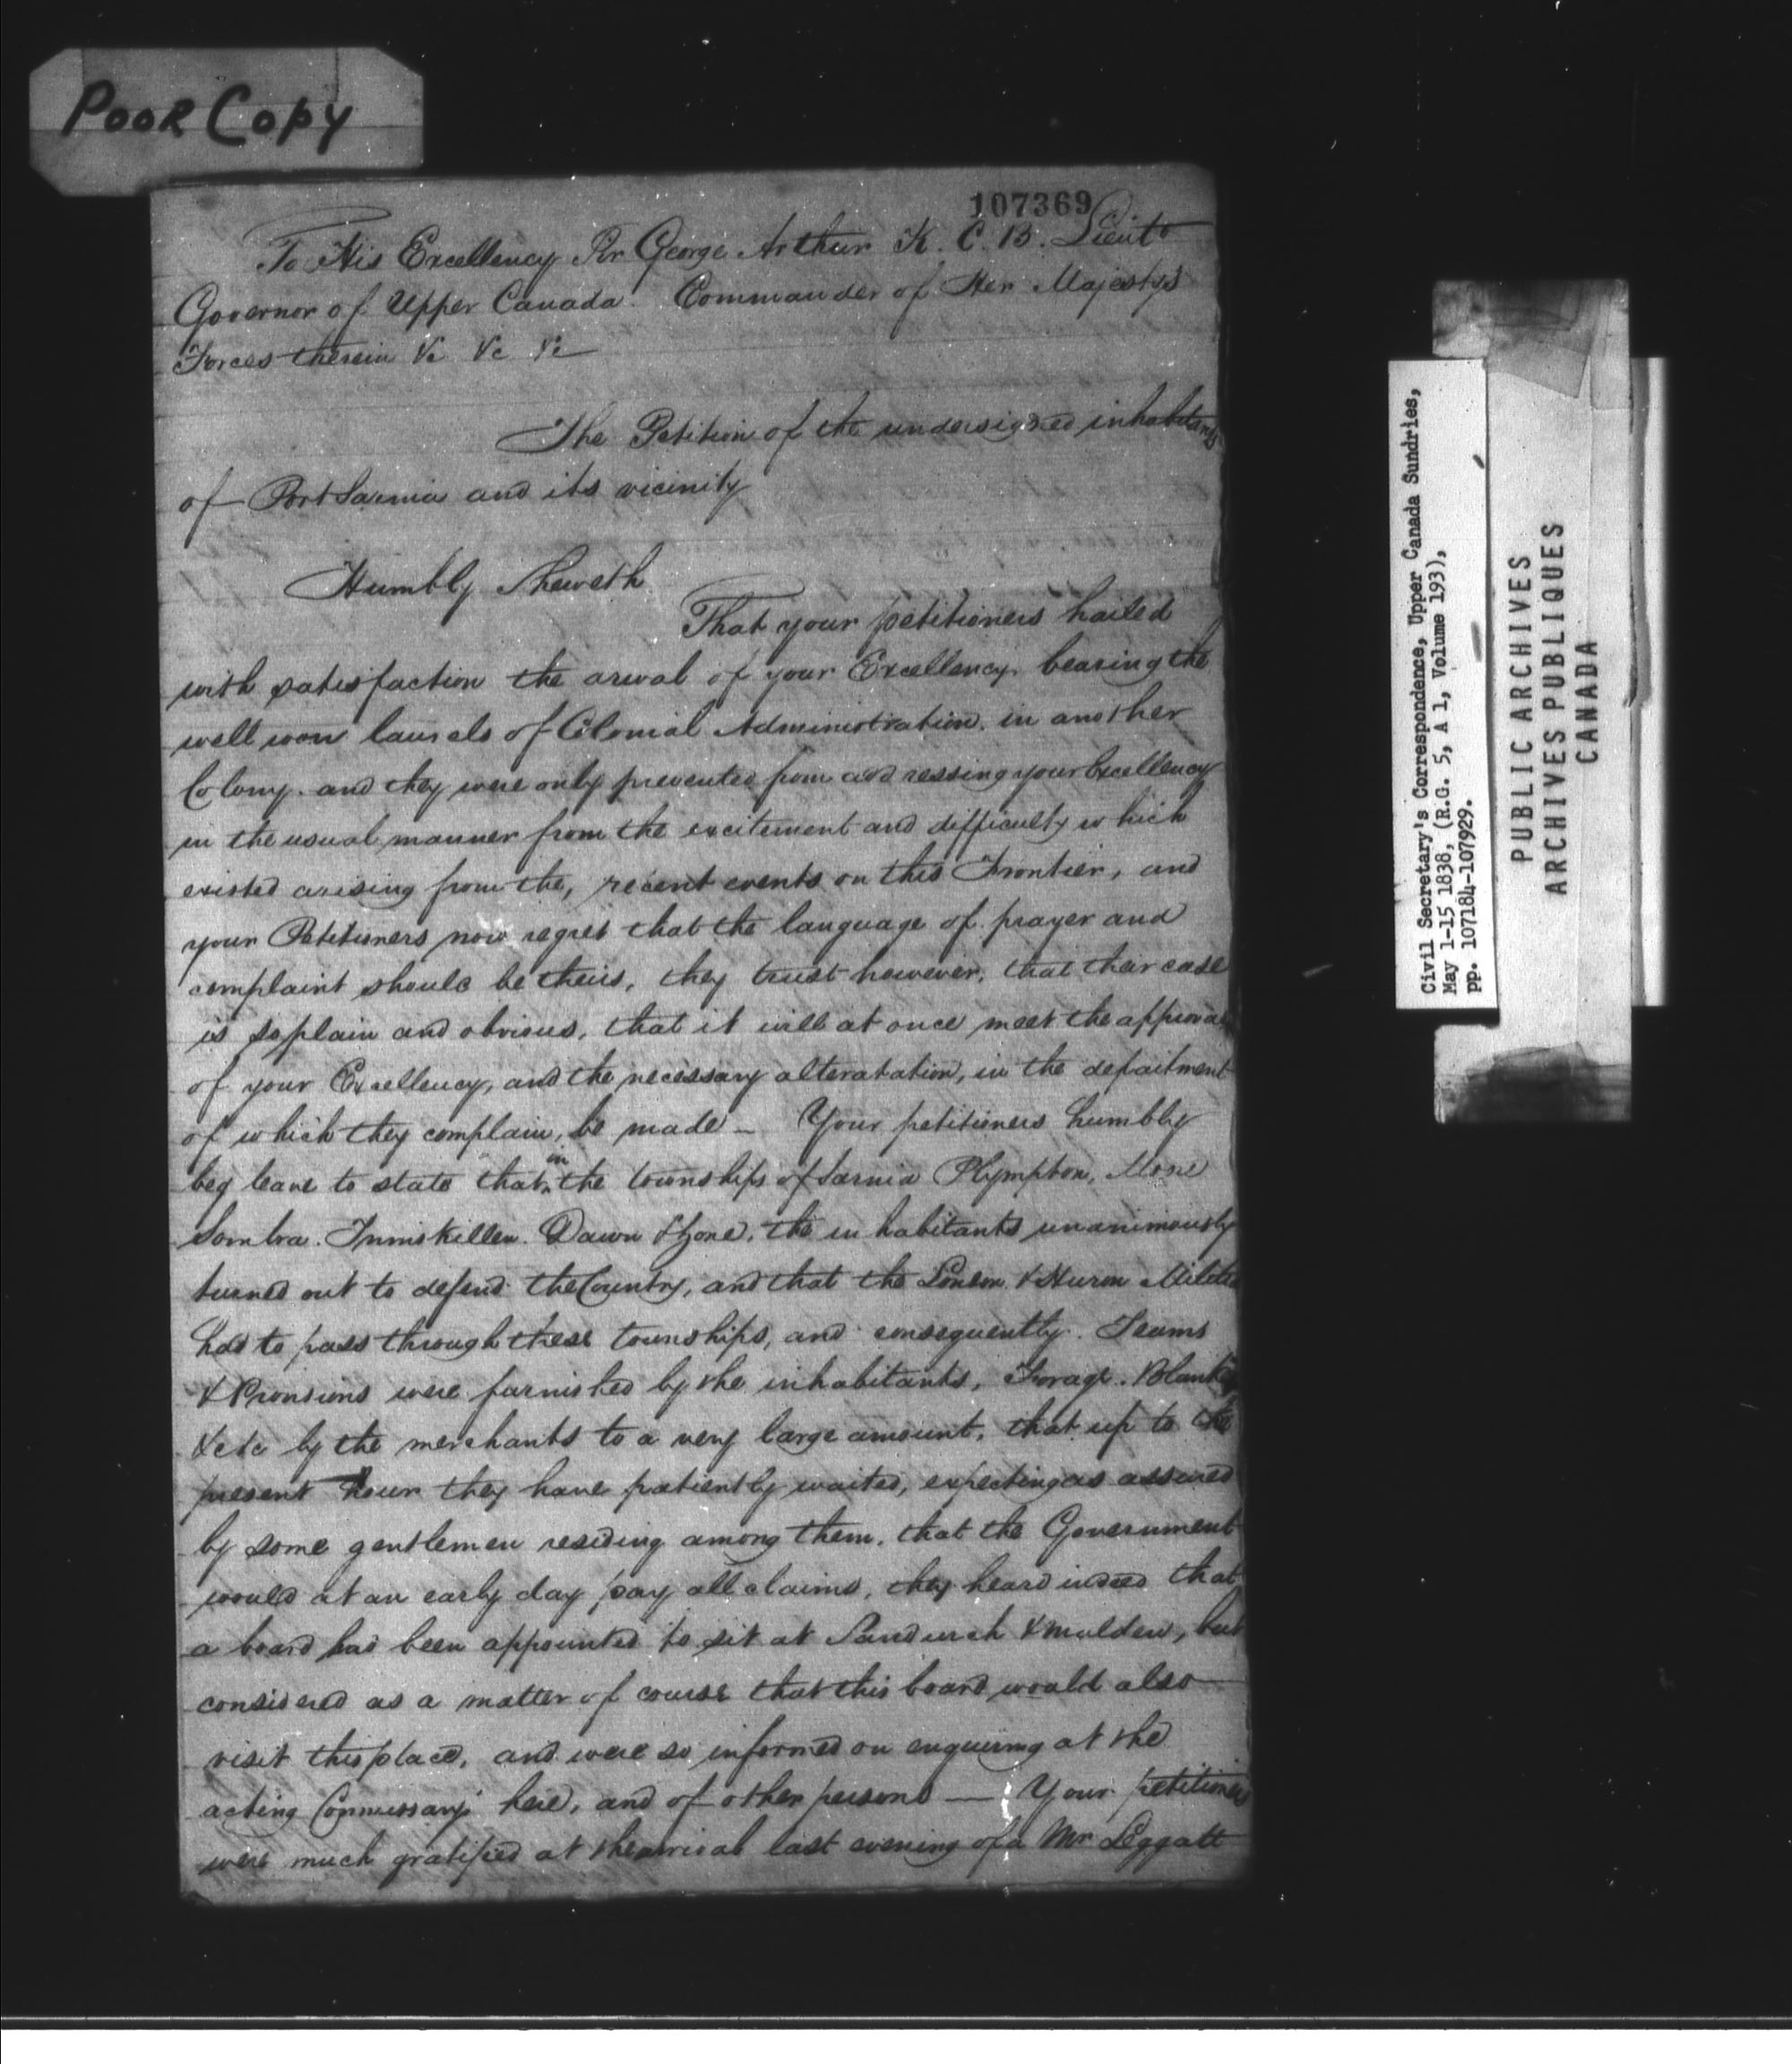 POOR COPY
107369
To His Excellency Sir George Arthur K. C. B. Lieut
Governor of Upper Canada. Commander of Her Majesty's
Forces therein &c &c &c
The Petition of the undersigned inhabitants
of Port Sarnia and its vicinity
Humbly Sheweth
That your petitioners hailed
with satisfaction the arival of your Excellency bearing the
well won laurels of Colonial Administration. in another
Colony. and they were only prevented from addressing your Excellency
in the usual manner from the excitement and difficulty which
existed arising from the, recent events on this Frontier, and
your Petitioners now regret that the language of prayer and
complaint should be theirs, they trust however, that their case
is so plain and obvious, that it will at once meet the approval
of your Excellency, and the necessary alteratation, in the department
of which they complain, be made — Your petitioners humbly
beg leave to state that in the townships of Sarnia Plympton, More
Sombra. Inniskillen. Dawn & Zone, the inhabitants unanimously
turned out to defend the Country, and that the London & Huron Militia
had to pass through these townships, and consequently. Teams
& Provisions were furnished by the inhabitants, Forage. Blankets
&c &c by the merchants to a very large amount, that up to the
present hour they have patiently waited, expecting as assured
by some gentlemen residing among them, that the Government
would at an early day pay all claims, they heard indeed that
a board had been appointed to sit at Sandwich & Malden, but
considered as a matter of course that this board would also
visit this place, and were so informed on enquiring at the
acting Commissary's here, and of other persons — Your petitioners
were much gratified at the arrival last evening of a Mr Leggatt
Civil Secretary's Correspondence, Upper Canada Sundries,
May 1-15 1838, (R.G. 5, A 1, Volume 193),
pp. 107184-107929.
PUBLIC ARCHIVES
ARCHIVES PUBLIQUES
CANADA